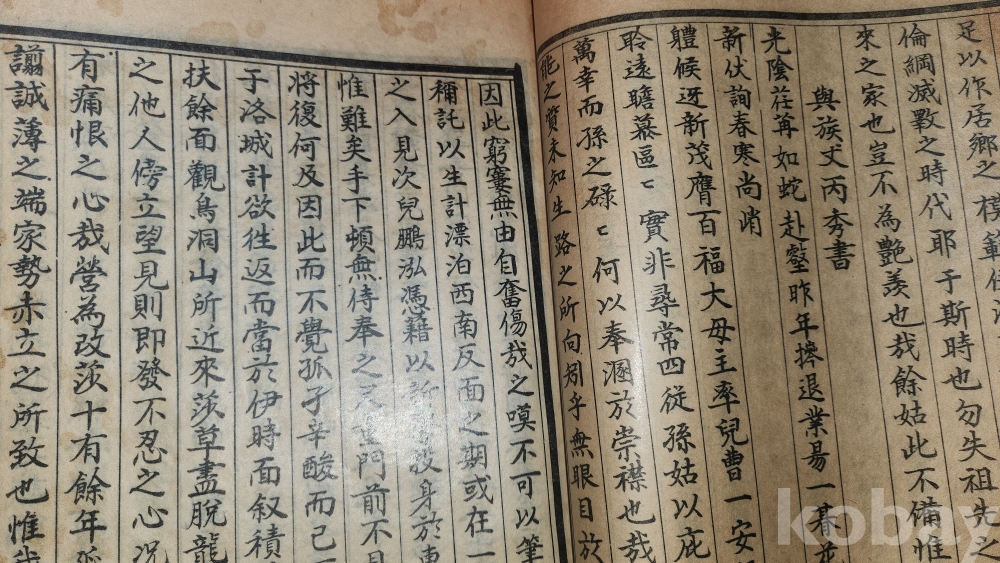 足以作居鄉之模範
倫綱滅斁之時代耶于斯時也勿失祖先之
來之家也豈不為艷羨也哉餘姑此不備惟
與族丈丙秀書
光陰荏苒如蛇赴壑昨年搾退業曷一暮
新伏詢春寒尚峭
軆候迓新茂膺百福大母主率兒曹一安
聆遠瞻慕區〻實非尋常四從孫姑以庇
萬幸而孫之碌〻何以奉溷於崇襟也哉
能之質未知生路之所向矧乎無眼目於
因此窮寠無由自奮傷哉之嘆不可以筆
稱託以生計漂泊西南反面之期或在一
之入見次兒鵬泓憑藉以 投身於
惟難矣手下頓無侍奉之 門前不
將復何及因此而不覺孤孑辛酸而已
于洛城計欲往返而當於伊時面叙積
扶餘面觀鳥洞山所近來莎草盡脫龍
之他人傍立望見則即發不忍之心况
有痛恨之心哉營為改莎十有餘年
誠薄之端家勢赤立之所致也惟
kobay